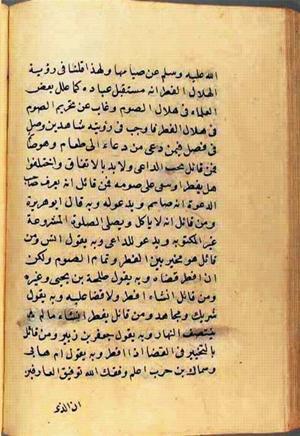 الله عليه وسلم عن صيامها ولهذا قلنا فى رؤية
الهلال الفطر انه مستقبل عباده كما علل بعض
العلماء فى هلال الصوم وغاب عن تحريم الصوم
فى هلال الفطر فما وجب فى رؤيته شاهدين وصل
فى فصل فيمن دعى من دعاء الى طعام وهو صائم
فمن قائل يجيب الداعى ولا بد بالاتفاق واختلفوا
هل يفطر او يبقى على صومه فمن قائل انه يعرف صاحب
الدعوة انه صايم ويدعو له وبه قال ابو هريرة
ومن قائل انه لا ياكل ويصلى الصلوة المشروعة
غير المكتوبة ويدعو للداعى وبه يقول انس ومن
قائل هو مخير بين الفطر وتمام الصوم ولكن
ان افطر قضاه وبه يقول طلحة بن يحيى وغيره
ومن قائل ان شاء افطر ولا قضا عليه وبه يقول
شريك ومجاهد ومن قائل يفطر ان شاء ما لم
ينتصف النهار وبه يقول جعفر بن زبير ومن قائل
بالتخيير فى القضا اذا افطر وبه يقول ام هانى
وسماك بن حرب اعلم وفقك الله توفيق العارفين
ان الذى